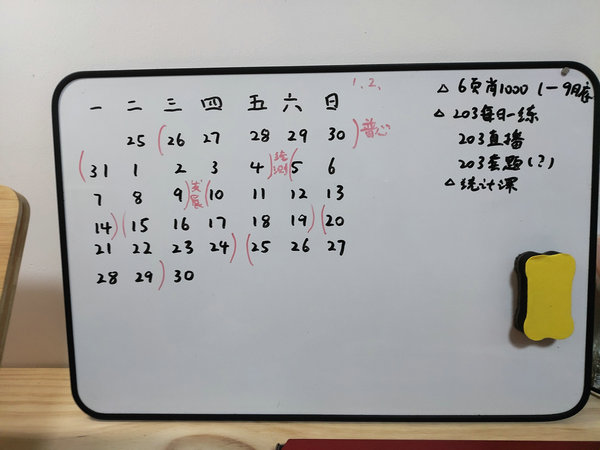 1、2、
一 二 三 四 五 六 日
25 (26 27 28 29 30) 普心
(31 1 2 3 4) 统测 (5 6
7 8 9) 发展 (10 11 12 13
14) (15 16 17 18 19) (20
21 22 23 24) (25 26 27
28 29) 30
△ 6页肖1000 (一9月底
△ 203每日一练
203直播
203套题(?)
△ 统计课